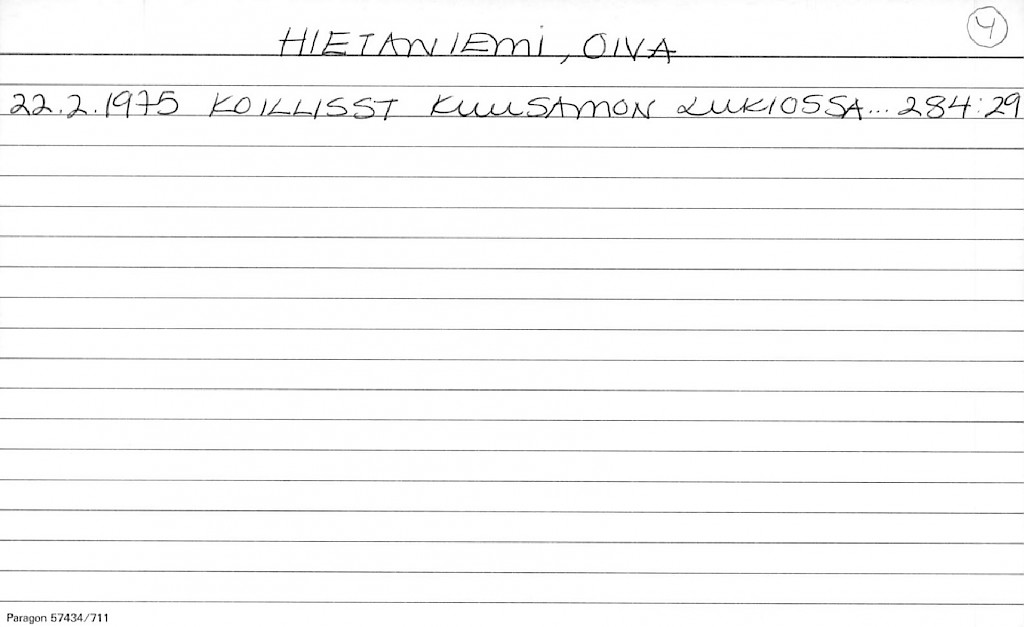 4
HIETANIEMI, OIVA
22.2.1975 KOILLISST KUUSAMON LUKIOSSA... 284:29
Paragon 57434/711